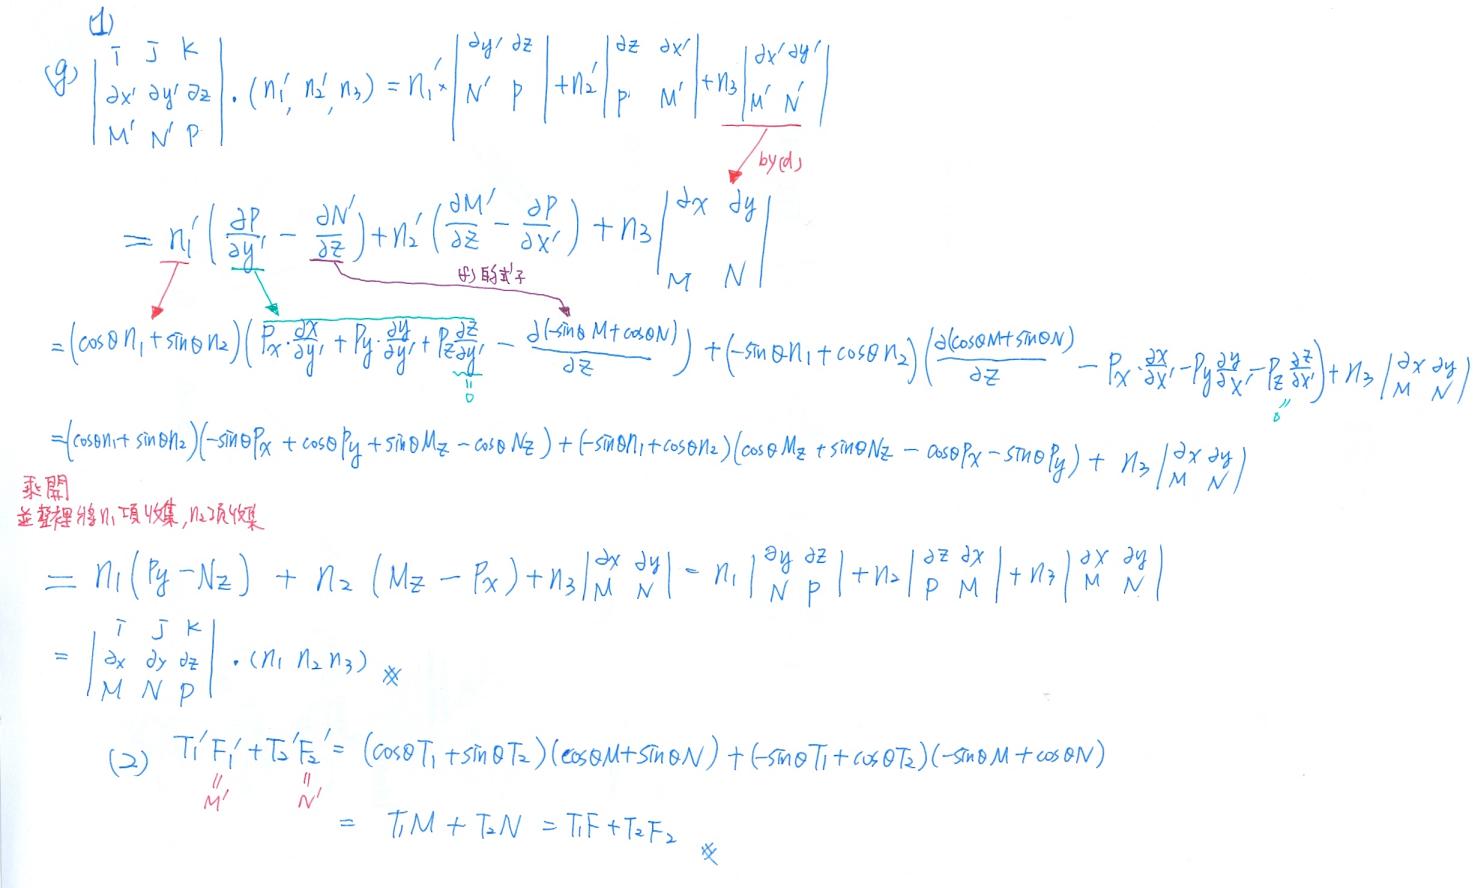 (1)
(g) | i j k ; ∂x' ∂y' ∂z ; M' N' P | · (n₁', n₂', n₃) = n₁' × | ∂y' ∂z ; N' P | + n₂' | ∂z ∂x' ; P M' | + n₃ | ∂x' ∂y' ; M' N' |
by(d)
= n₁' ( ∂P/∂y' − ∂N'/∂z ) + n₂' ( ∂M'/∂z − ∂P/∂x' ) + n₃ | ∂x ∂y ; M N |
(f)的式子
= (cosθ n₁ + sinθ n₂) ( Px · ∂x/∂y' + Py · ∂y/∂y' + Pz ∂z/∂y' − ∂(−sinθ M + cosθ N)/∂z ) + (−sinθ n₁ + cosθ n₂) ( ∂(cosθ M + sinθ N)/∂z − Px · ∂x/∂x' − Py ∂y/∂x' − Pz ∂z/∂x' ) + n₃ | ∂x ∂y ; M N |
= 0
= 0
= (cosθ n₁ + sinθ n₂) (−sinθ Px + cosθ Py + sinθ Mz − cosθ Nz) + (−sinθ n₁ + cosθ n₂) (cosθ Mz + sinθ Nz − cosθ Px − sinθ Py) + n₃ | ∂x ∂y ; M N |
乘開
並整裡將n₁項收集, n₂項收集
= n₁ (Py − Nz) + n₂ (Mz − Px) + n₃ | ∂x ∂y ; M N | = n₁ | ∂y ∂z ; N P | + n₂ | ∂z ∂x ; P M | + n₃ | ∂x ∂y ; M N |
= | i j k ; ∂x ∂y ∂z ; M N P | · (n₁ n₂ n₃) ※
(2) T₁'F₁' + T₂'F₂' = (cosθ T₁ + sinθ T₂) (cosθ M + sinθ N) + (−sinθ T₁ + cosθ T₂) (−sinθ M + cosθ N)
= M' = N'
= T₁M + T₂N = T₁F + T₂F₂ ※